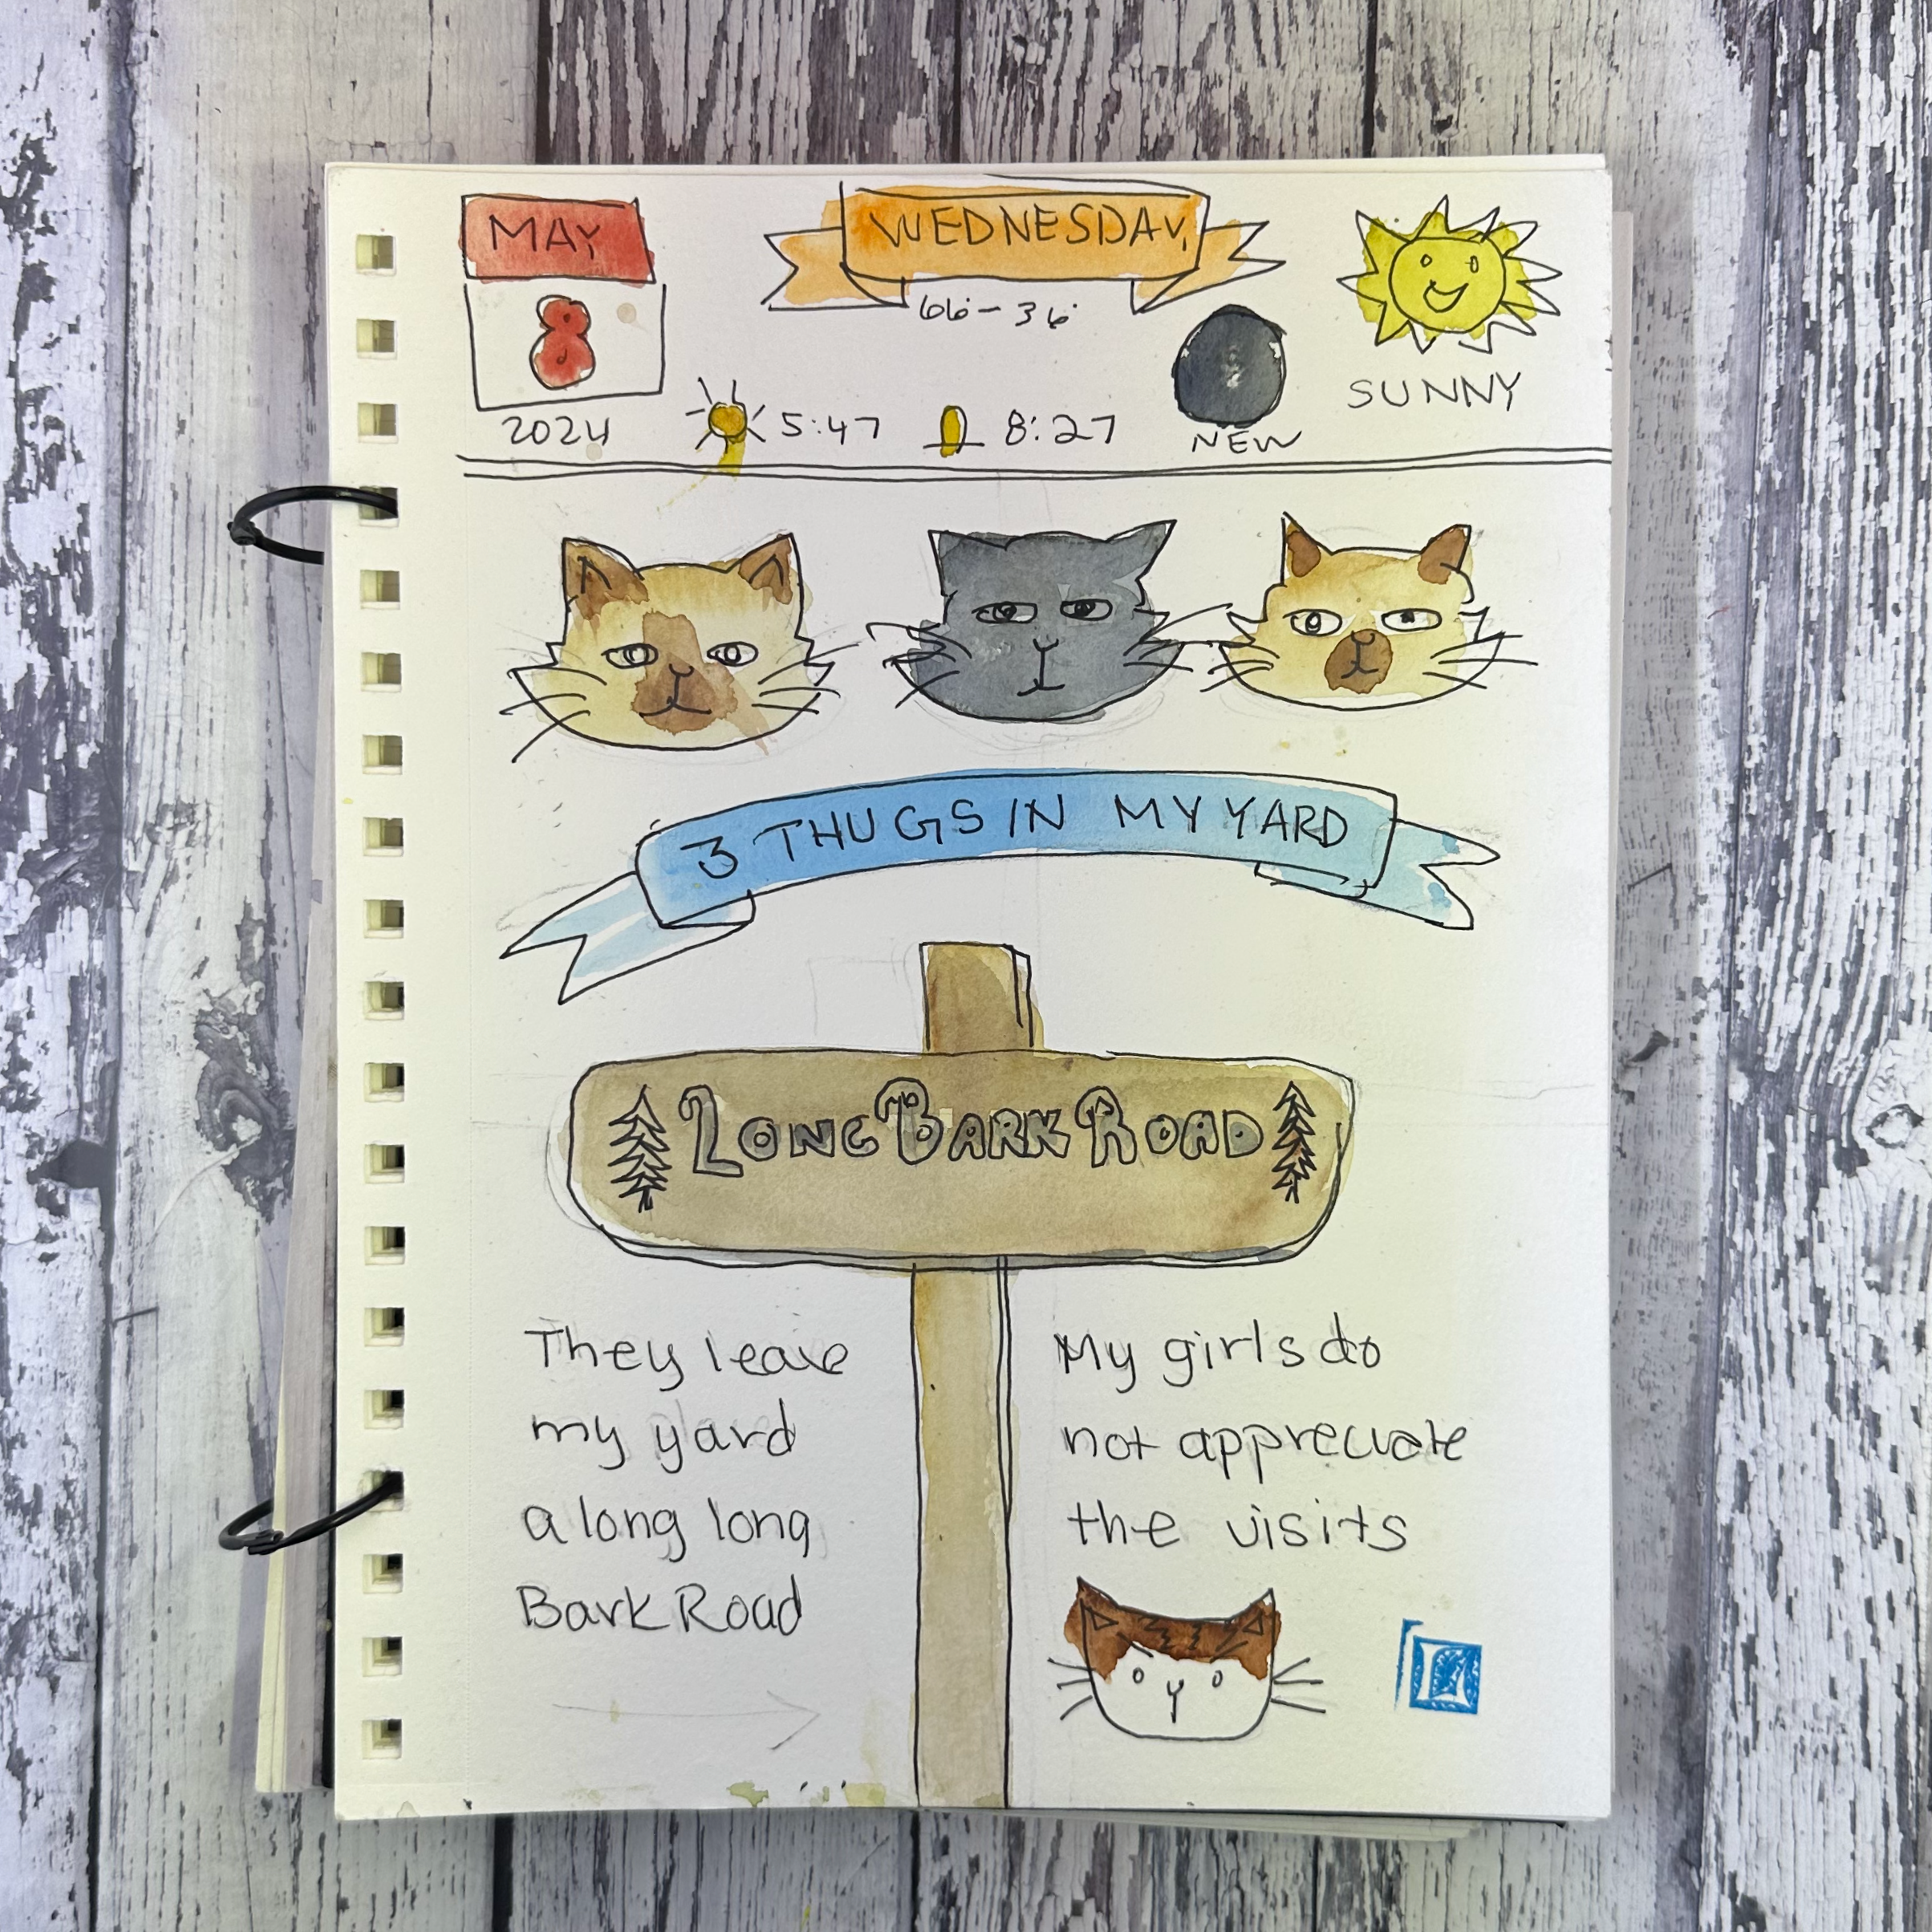 MAY
WEDNESDAY,
66°-36°
8
2024
5:47
8:27
NEW
SUNNY
3 THUGS IN MY YARD
LONG BARK ROAD
They leave
my yard
a long long
Bark Road
My girls do
not appreciate
the visits